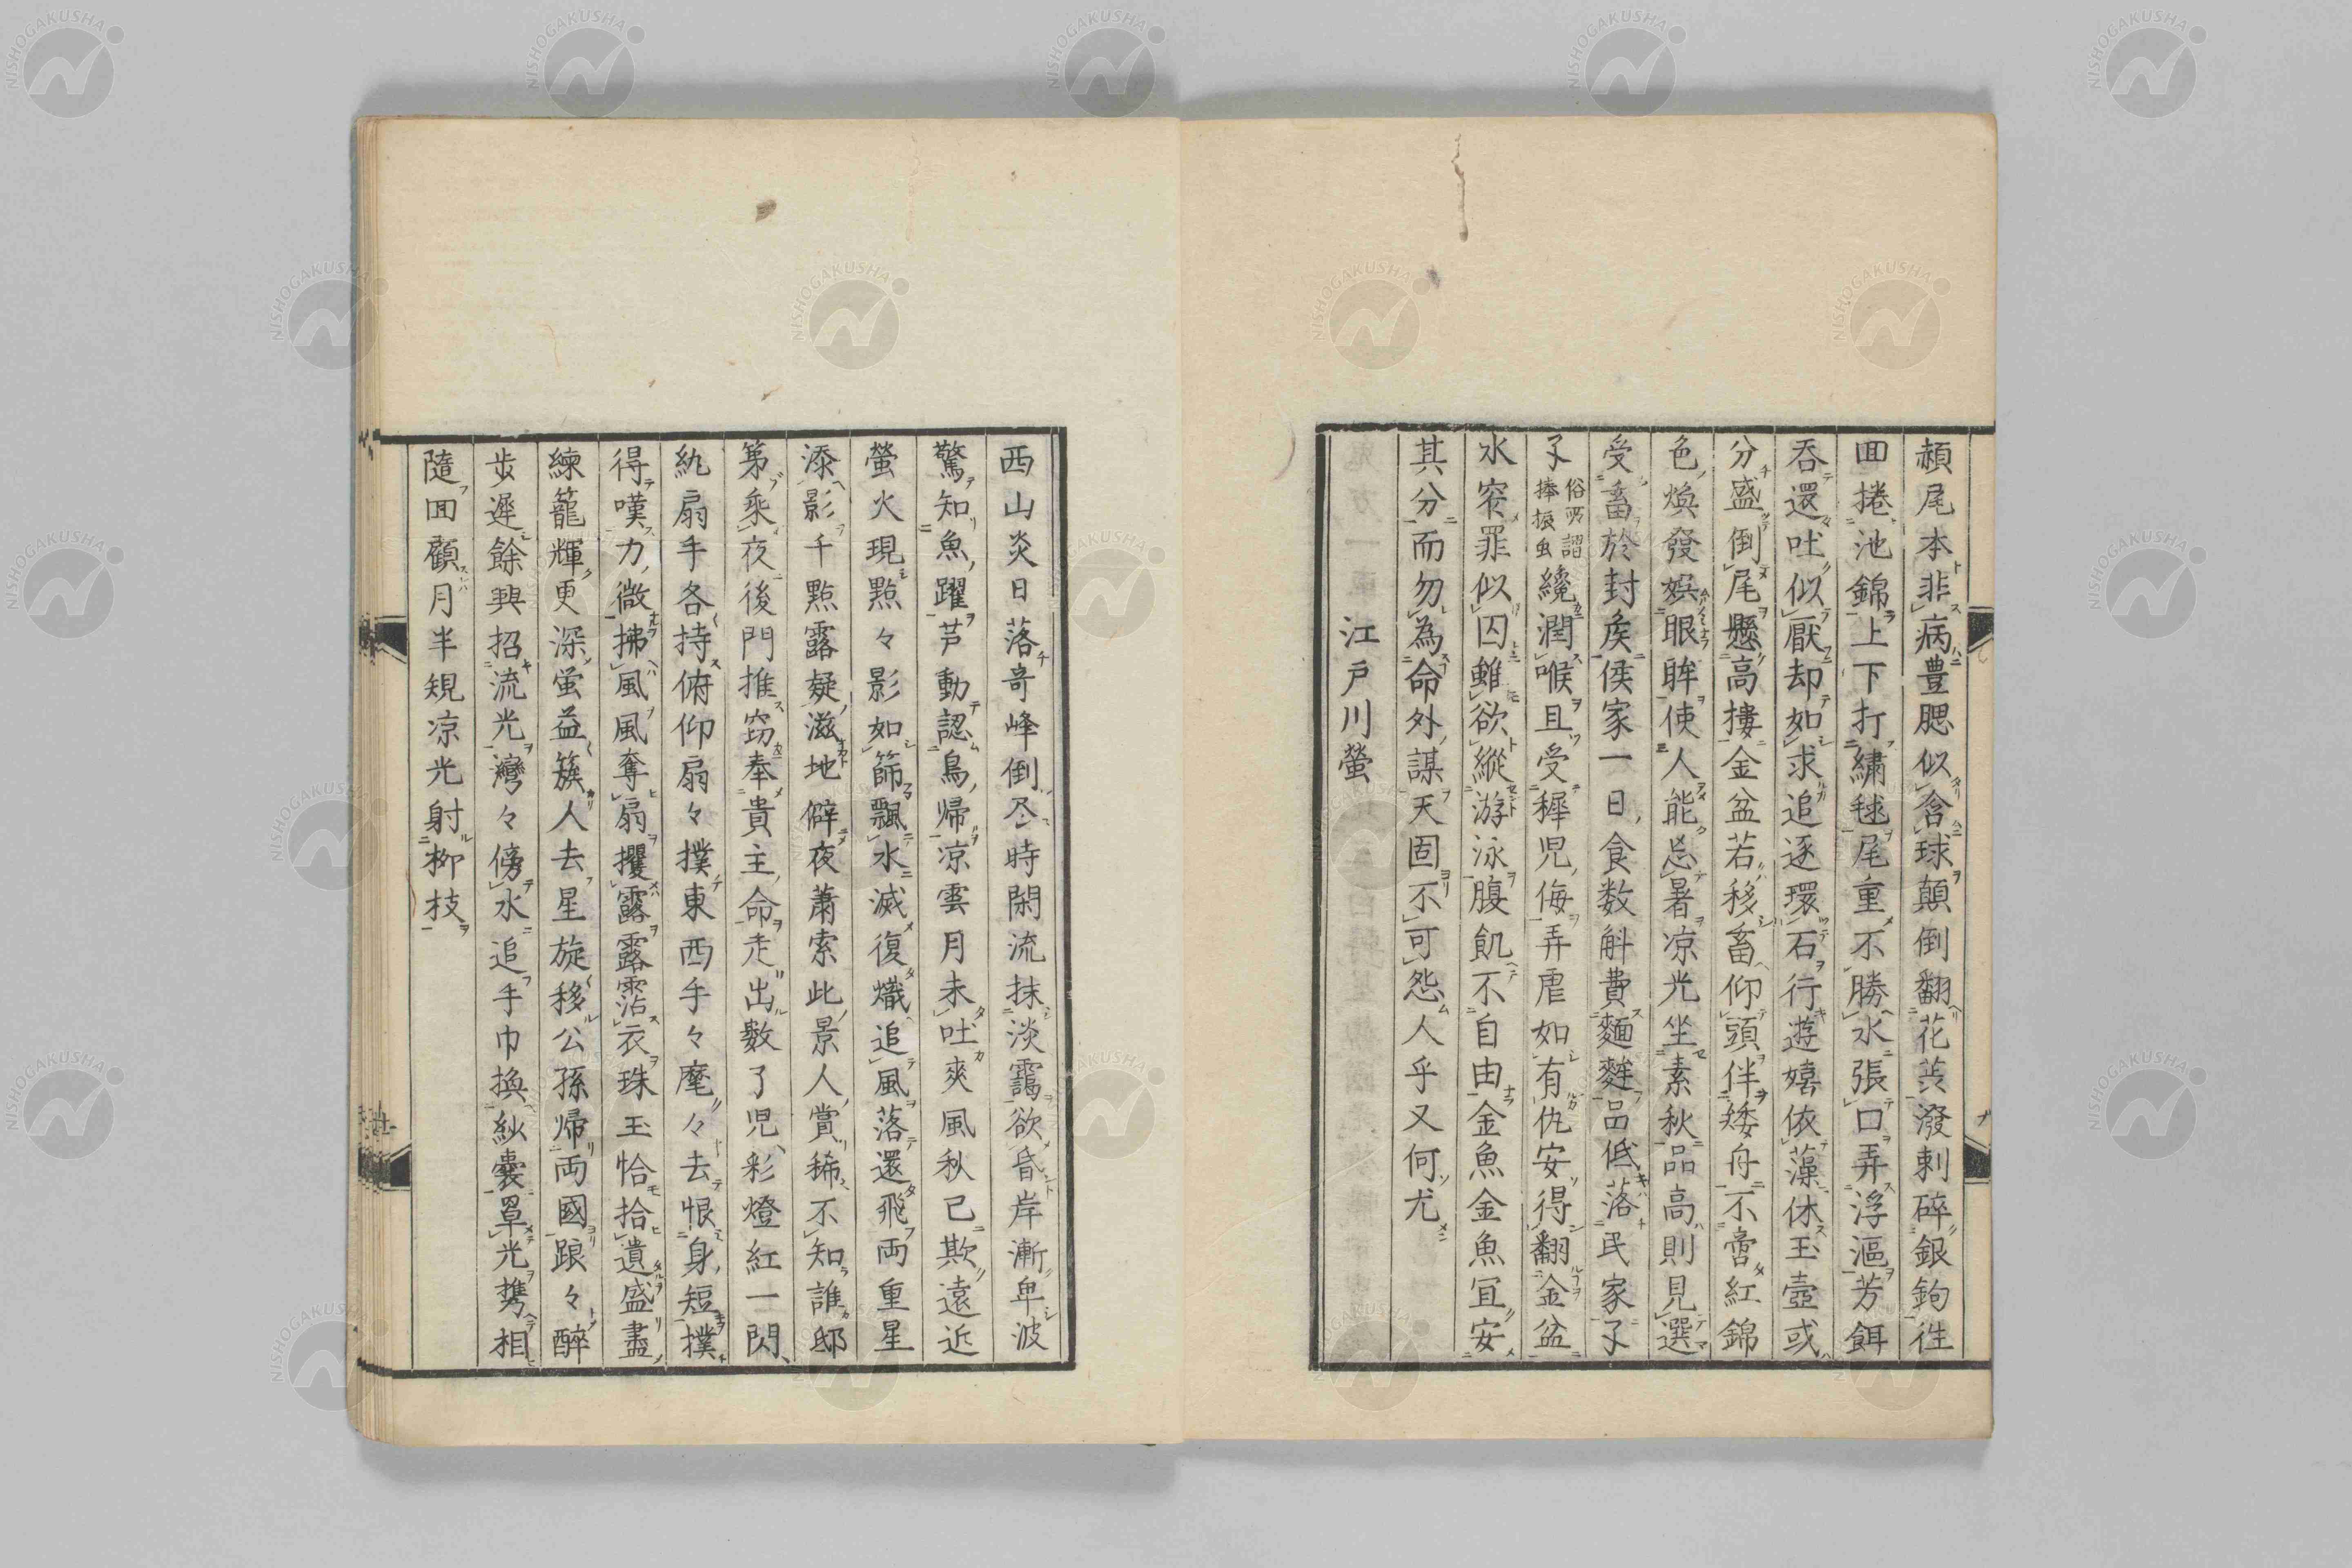 頳尾本非病豊腮似含球顛倒翻花茵潑剌碎銀鉤徃
囬捲池錦上下打繡毬尾重不勝水張口弄浮漚芳餌
吞還吐似厭却如求追逐環石行遊嬉依藻休玉壺或
分盛倒尾懸高摟金盆若移畜仰頭伴矮舟不啻紅錦
色煥發娯眼眸使人能忘暑凉光坐素秋品高則見選
受畜於封矦侯家一日食数斛費麺麰品低落民家孑
孑俗所謂捧振虫纔潤喉且受穉児侮弄虐如有仇安得翻金盆
水窄罪似囚雖欲縱游泳腹飢不自由金魚金魚冝安
其分而勿為命外謀天固不可怨人乎又何尤
江戸川螢
西山炎日落奇峰倒尽時閑流抹淡靄欲昏岸漸卑波
驚知魚躍芦動認鳥帰凉雲月未吐爽風秋已欺遠近
螢火現點々影如篩飄水滅復熾追風落還飛両重星
添影千點露疑滋地僻夜蕭索此景人賞稀不知誰邸
第乘夜後門推窈奉貴主命走出數了児彩燈紅一閃
紈扇手各持俯仰扇々撲東西手々麾々去恨身短撲
得嘆力微拂風風奪扇攫露露霑衣珠玉恰拾遺盛盡
練籠輝更深蛍益簇人去星旋移公孫帰両國踉々醉
歩遲餘興招流光灣々傍水追手巾換紗囊罩光携相
隨囬顧月半規凉光射柳技